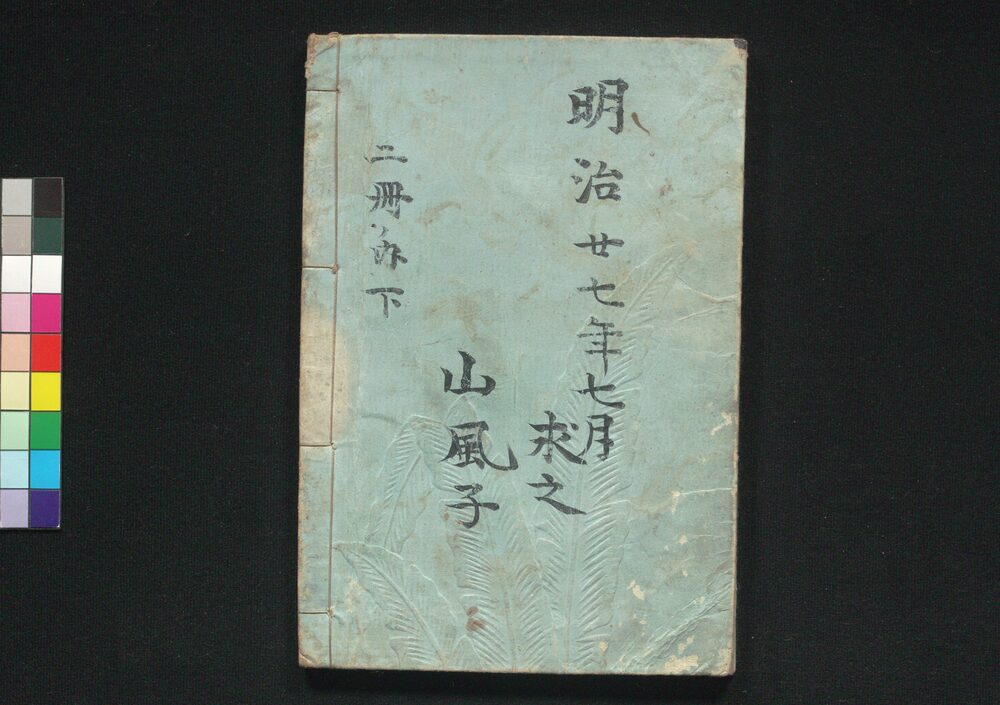 明治廿七年七月
求之
山風子
二冊ノ内下